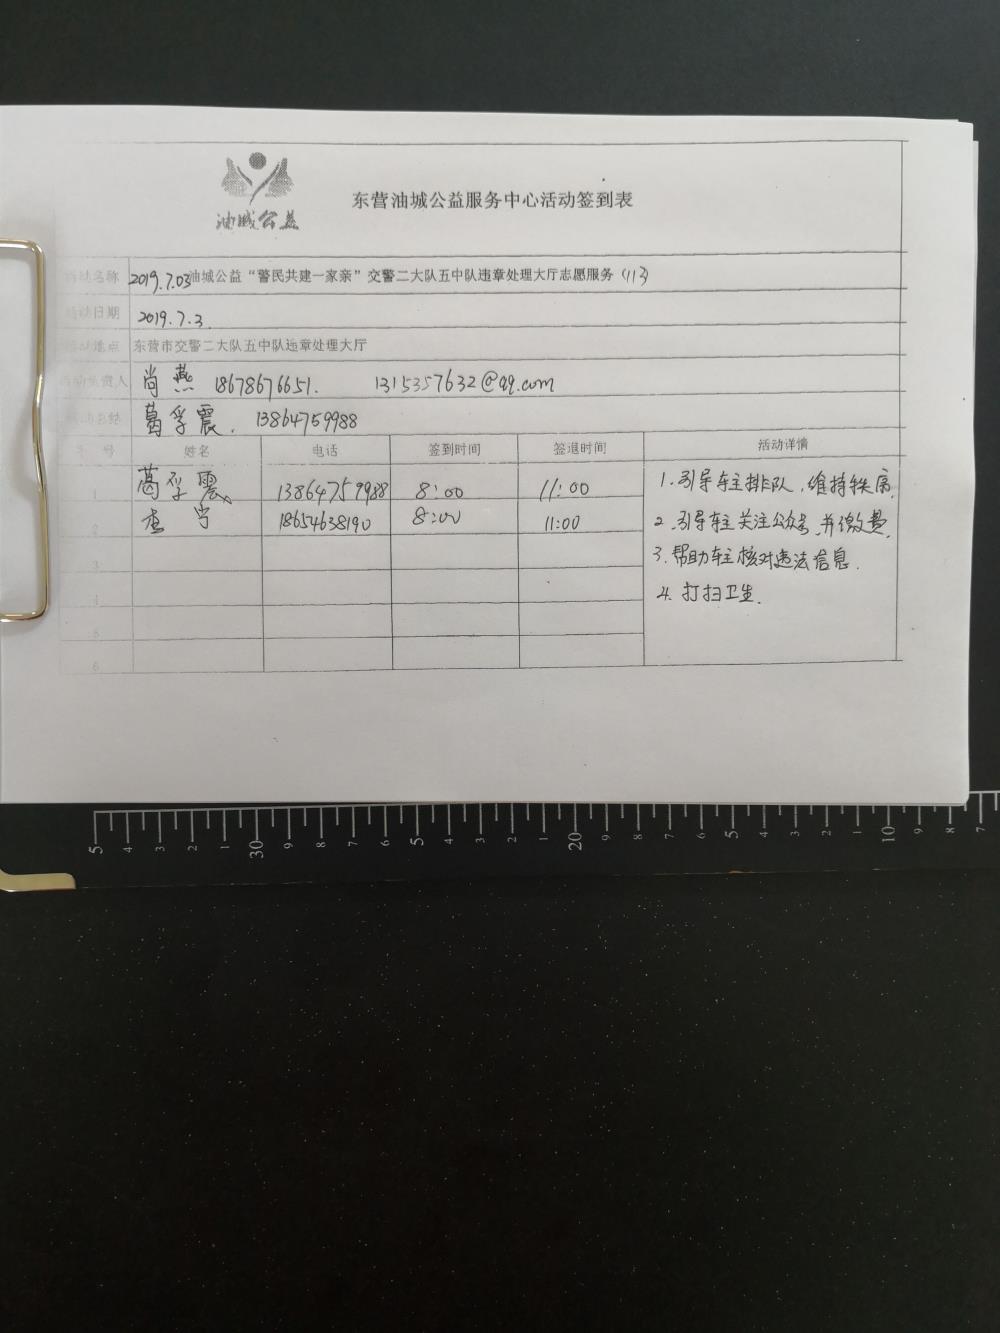 油城公益
东营油城公益服务中心活动签到表
活动名称 2019.7.03油城公益“警民共建一家亲”交警二大队五中队违章处理大厅志愿服务（113）
活动日期 2019.7.3.
活动地点 东营市交警二大队五中队违章处理大厅
活动负责人 尚燕 18678676651. 1315357632@qq.com
活动总结 葛孚震. 13864759988
序号 姓名 电话 签到时间 签退时间 活动详情
1 葛孚震 13864759988 8:00 11:00
2 18654638190 8:00 11:00
3
4
5
6
1.引导车主排队,维持秩序.
2.引导车主关注公众号,并缴费.
3.帮助车主核对违法信息.
4.打扫卫生.
5 4 3 2 1 30 9 8 7 6 5 4 3 2 1 20 9 8 7 6 5 4 3 2 1 10 9 8 7